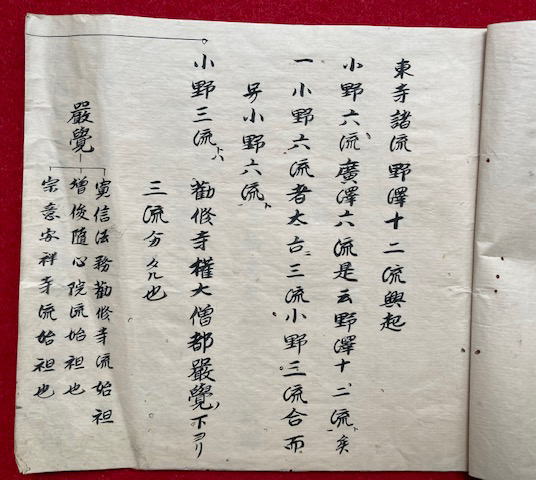 東寺諸流野澤十二流興起
小野六流廣澤六流是云野澤十二流矣
一小野六流者太古ニ三流小野三流合而
号小野六流ト
小野三流ト八 勸修寺權大僧都嚴覺ノ下ヨリ
三流分タル也
嚴覺
寛信法務勸修寺流始祖
増俊隨心院流始祖也
宗意安祥寺流始祖也